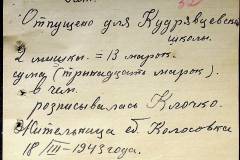 Отпущено для Кудрявцевск
школы.
2 мишки. = 13 марок.
сума (тринадцать марок).
в чем
розписывалась Клочко.
Жительница с. Колосовка
18/III-1943 года.